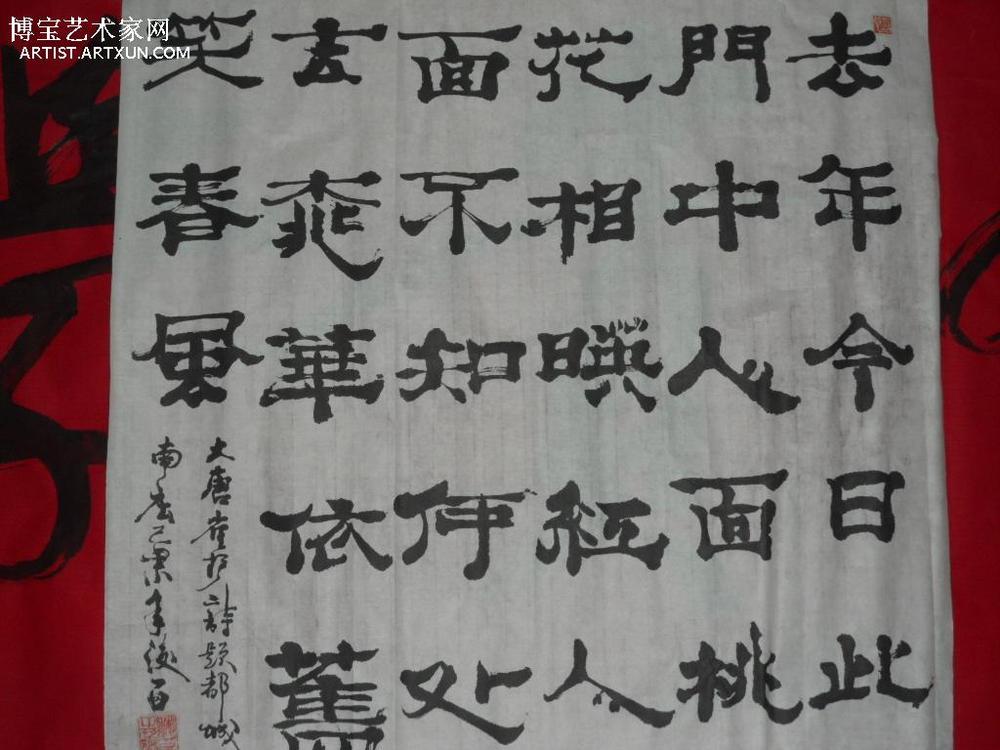 博宝艺术家网
ARTIST.ARTXUN.COM
去年今日此
門中人面桃
花相暎紅人
面不知何处
去桃華依舊
笑春風
大唐崔护詩題都城
南庄